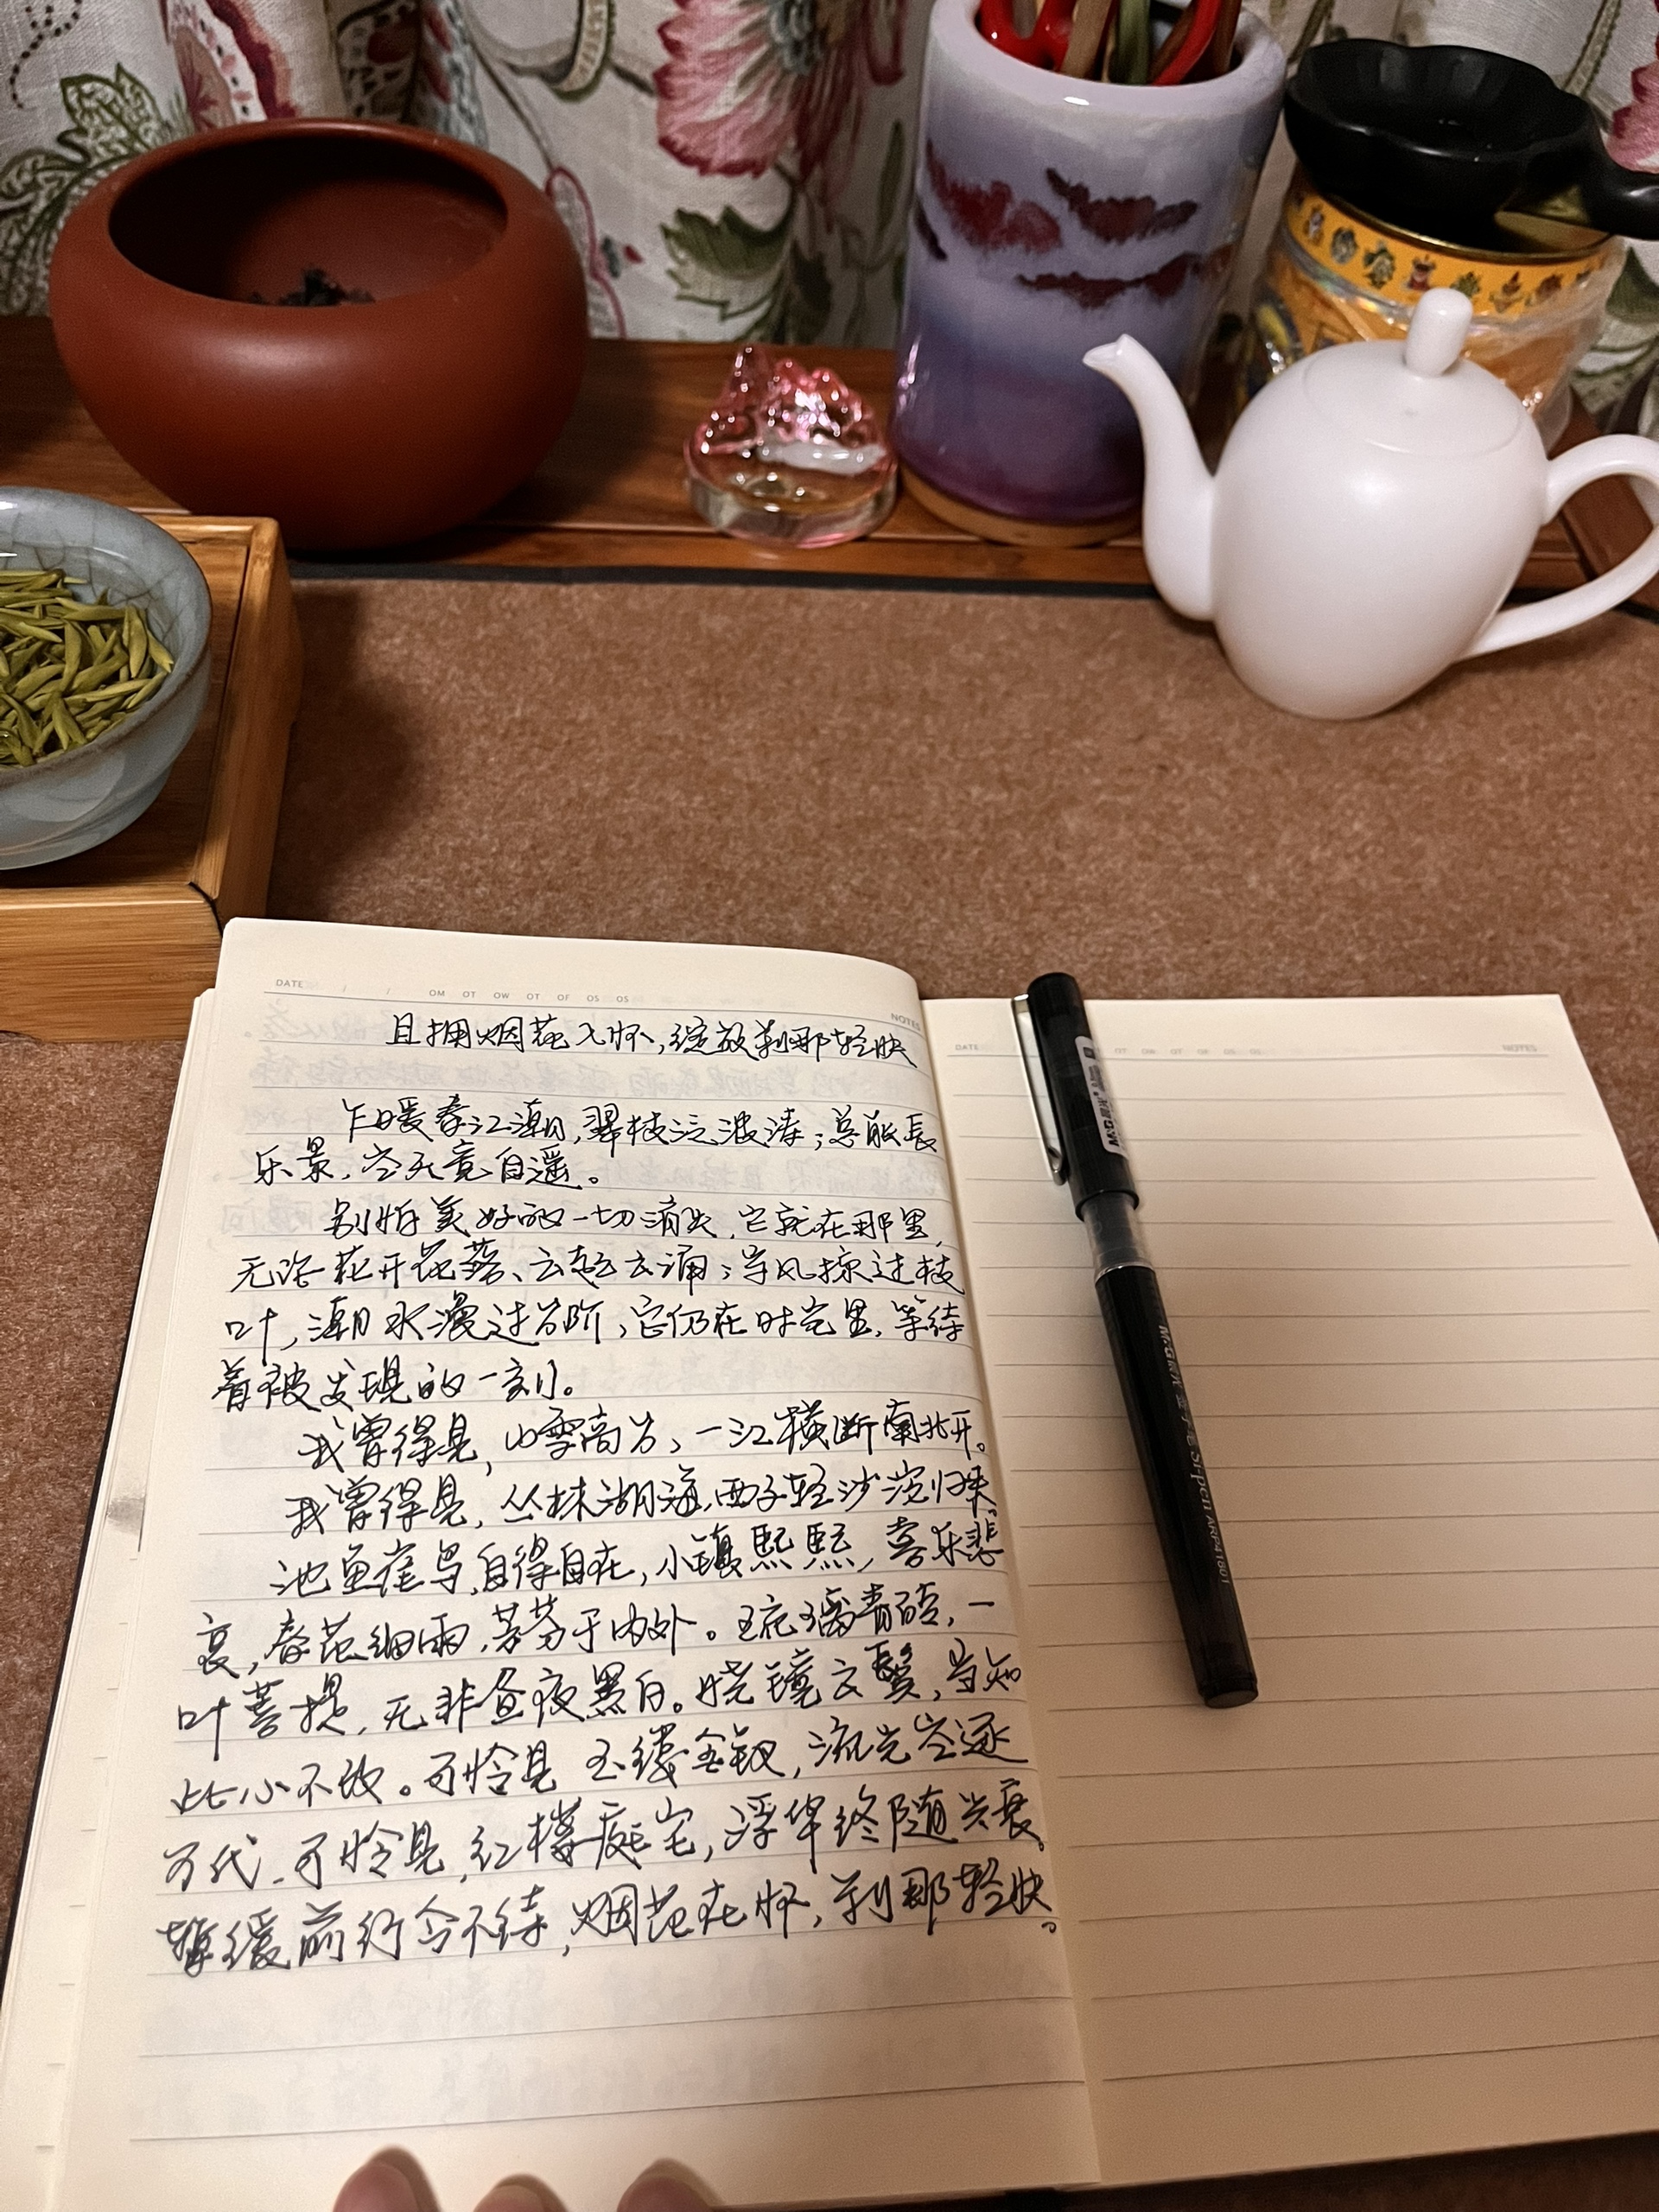 DATE / / OM OT OW OT OF OS OS
NOTES
且拥烟花入怀,绽放刹那轻快
乍暖春江潮,翠枝泛波涛;总敞長
乐景,岑天竟自遥。
别怕美好的一切消失,它就在那里,
无论花开花落、云起云涌;等风掠过枝
叶,潮水漫过台阶,它仍在时光里,等待
着被发现的一刻。
我曾得見,山雪高台,一江横断南北开。
我曾得見,丛林湖海,西子轻沙浣归来。
池鱼崖鸟,自得自在,小镇熙熙,喜乐悲
哀,春花细雨,芬芳于内外。琉璃青砖,一
叶菩提,无非昼夜黑白。晓镜云鬓,当知
此心不改。可怜見 玉缕金钗,流光空逐
万代。可怜見,红楼庭宅,浮华终随兴衰。
缓前行今不待,烟花在怀,刹那轻快。
DATE OT OW OT OF OS OS
NOTES
M&G晨光
M&G晨光 Si-pen ARP41801